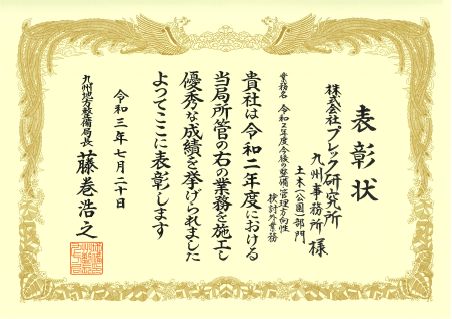 表彰状
株式会社プレック研究所
九州事務所 様
土木(公園)部門
業務名 令和2年度今後の整備・管理方向性
検討外業務
貴社は令和二年度における
当局所管の右の業務を施工し
優秀な成績を挙げられました
よってここに表彰します
令和三年七月二十日
九州地方整備局長 藤巻浩之